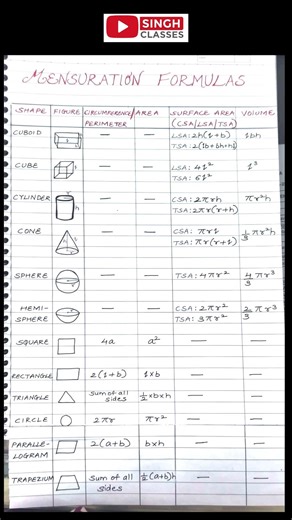 SINGH
CLASSES
MENSURATION FORMULAS
SHAPE FIGURE CIRCUMFERENCE/PERIMETER AREA SURFACE AREA (CSA/LSA/TSA) VOLUME
CUBOID — — LSA: 2h(l+b) lbh
TSA: 2(lb+bh+hl)
CUBE — — LSA: 4l² l³
TSA: 6l²
CYLINDER — — CSA: 2πrh πr²h
TSA: 2πr(r+h)
CONE — — CSA: πrl 1/3 πr²h
TSA: πr(r+l)
SPHERE — — TSA: 4πr² 4/3 πr³
HEMI-SPHERE — — CSA: 2πr² 2/3 πr³
TSA: 3πr²
SQUARE 4a a² — —
RECTANGLE 2(l+b) l×b — —
TRIANGLE Sum of all sides ½×b×h — —
CIRCLE 2πr πr² — —
PARALLE-LOGRAM 2(a+b) b×h — —
TRAPEZIUM Sum of all sides ½(a+b)h — —